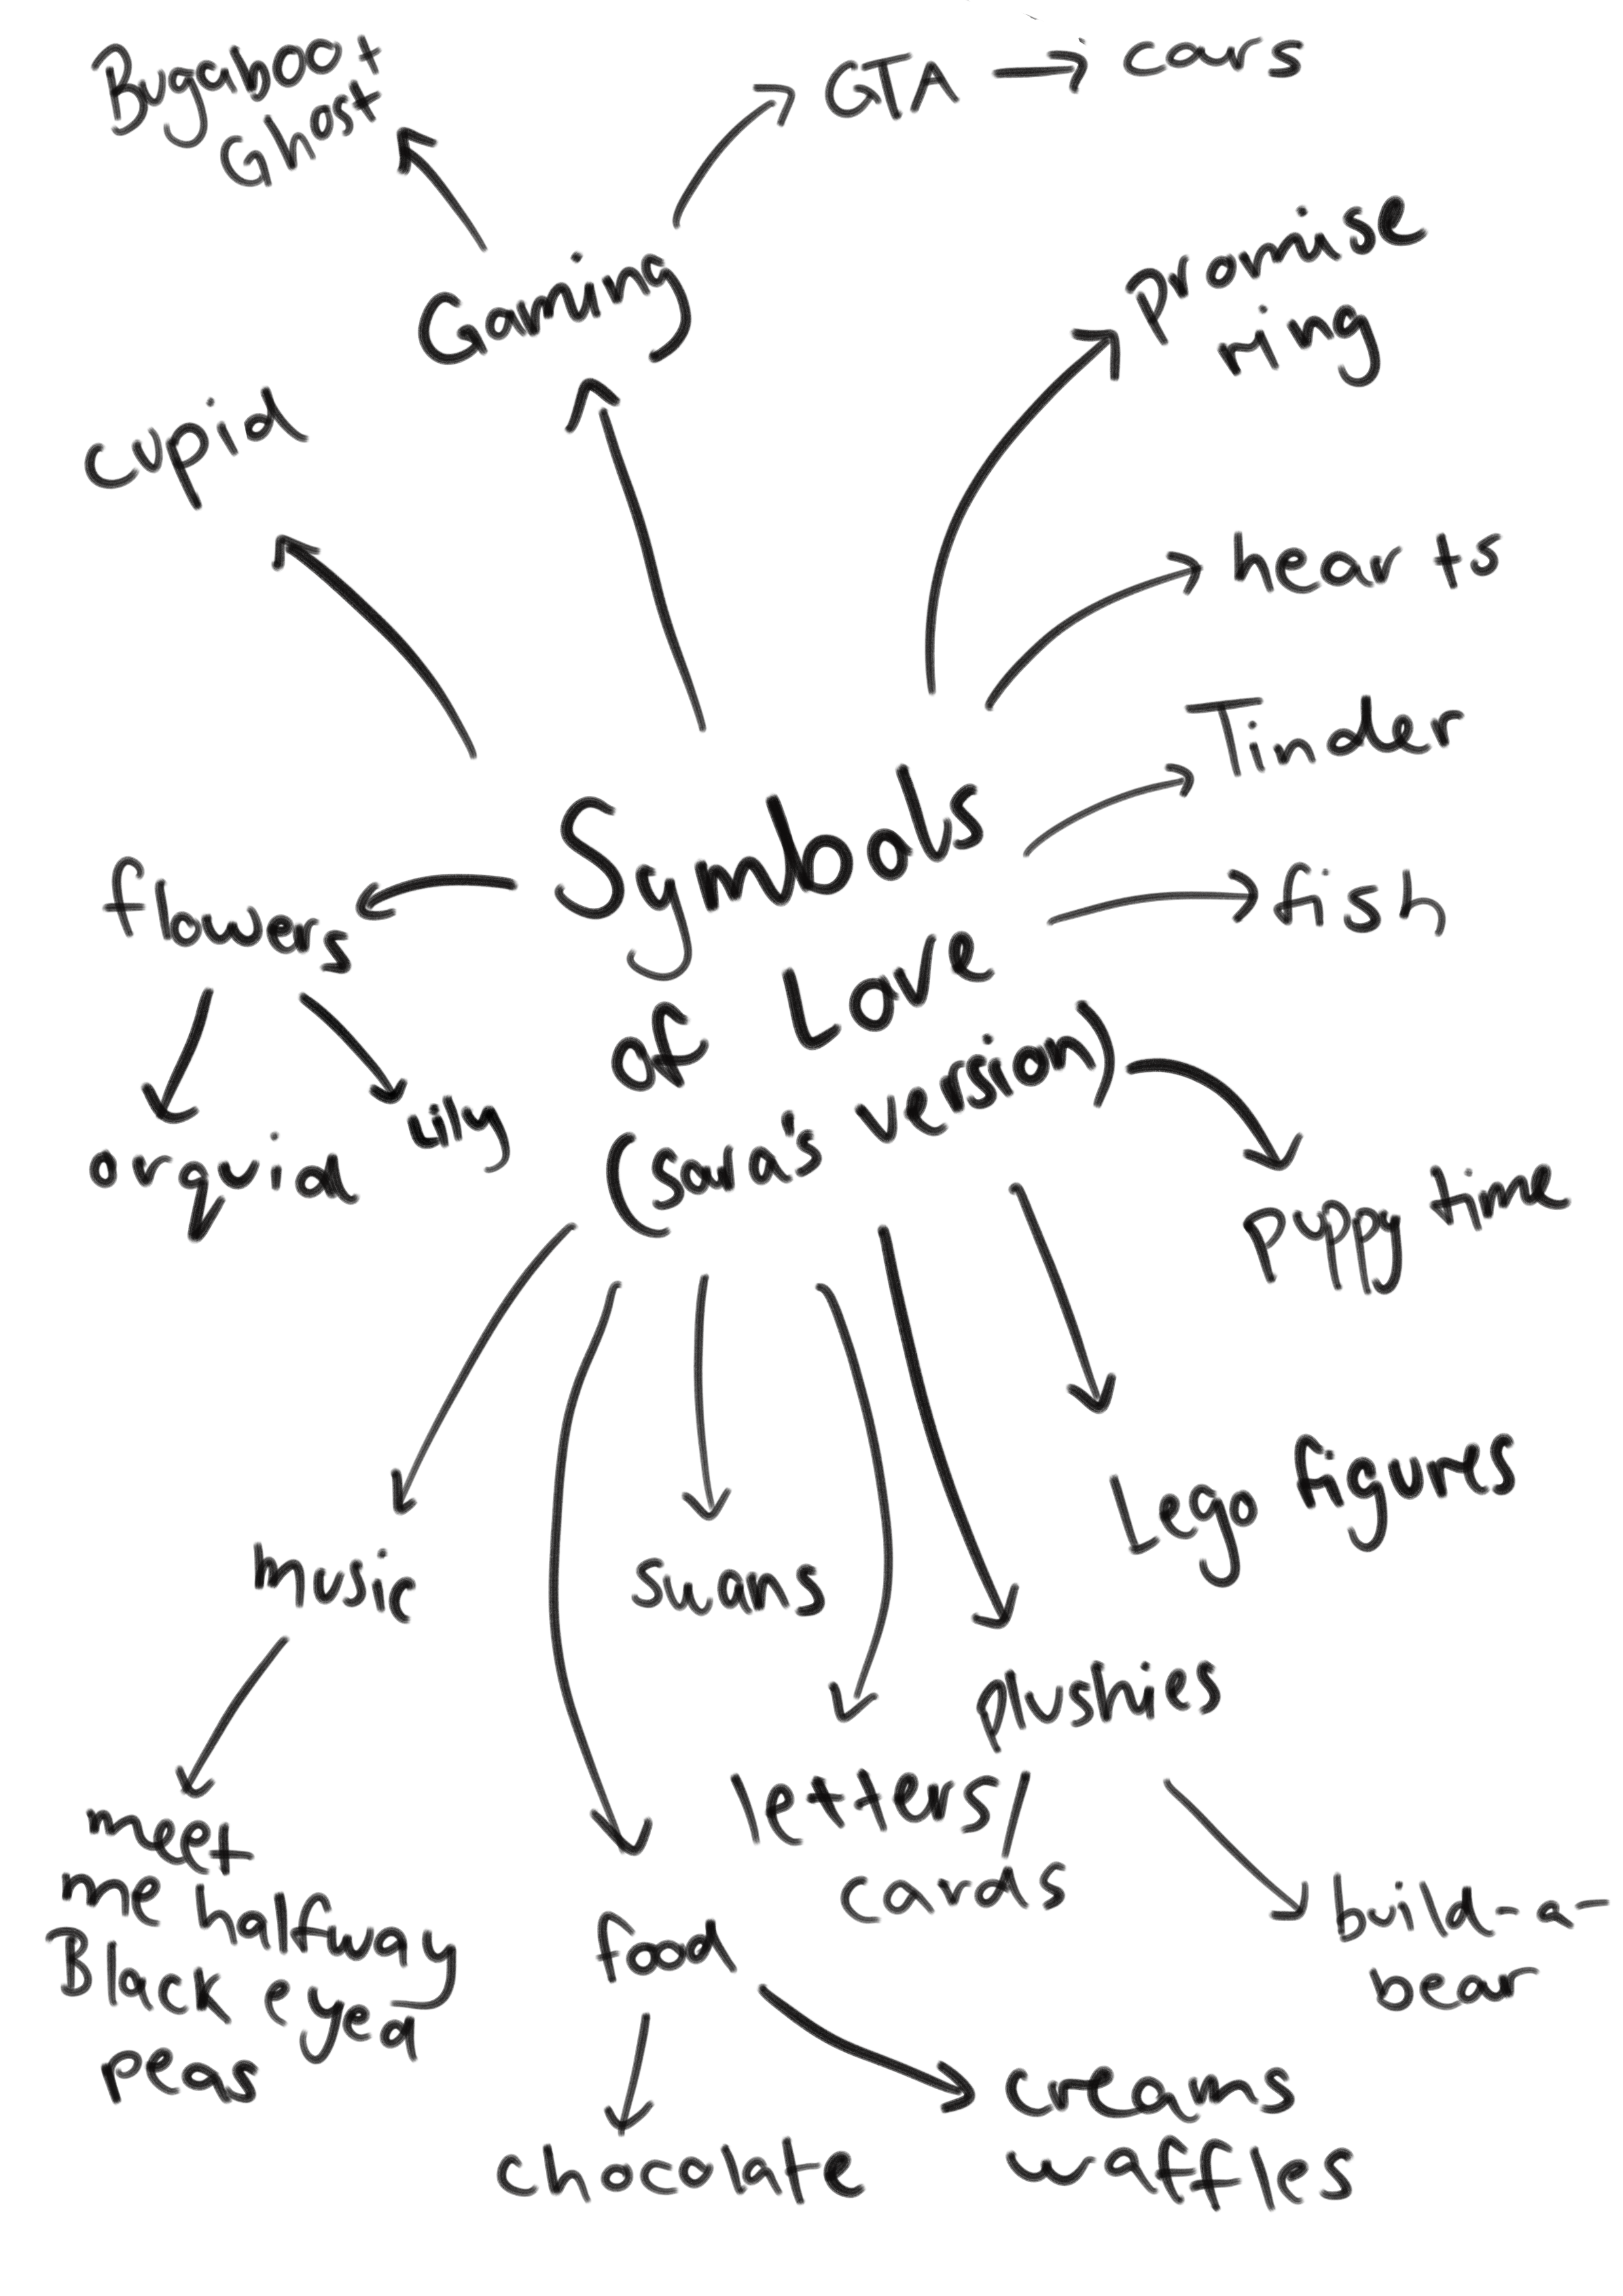 Bugaboo +
Ghost
GTA → cars
Gaming
promise
ring
cupid
hearts
Tinder
Symbols
of Love
(sara's version)
flowers
fish
orquid
Lily
puppy time
Lego figures
music
swans
plushies
letters/
cards
meet
me halfway
Black eyed
peas
food
build-a-
bear
chocolate
creams
waffles